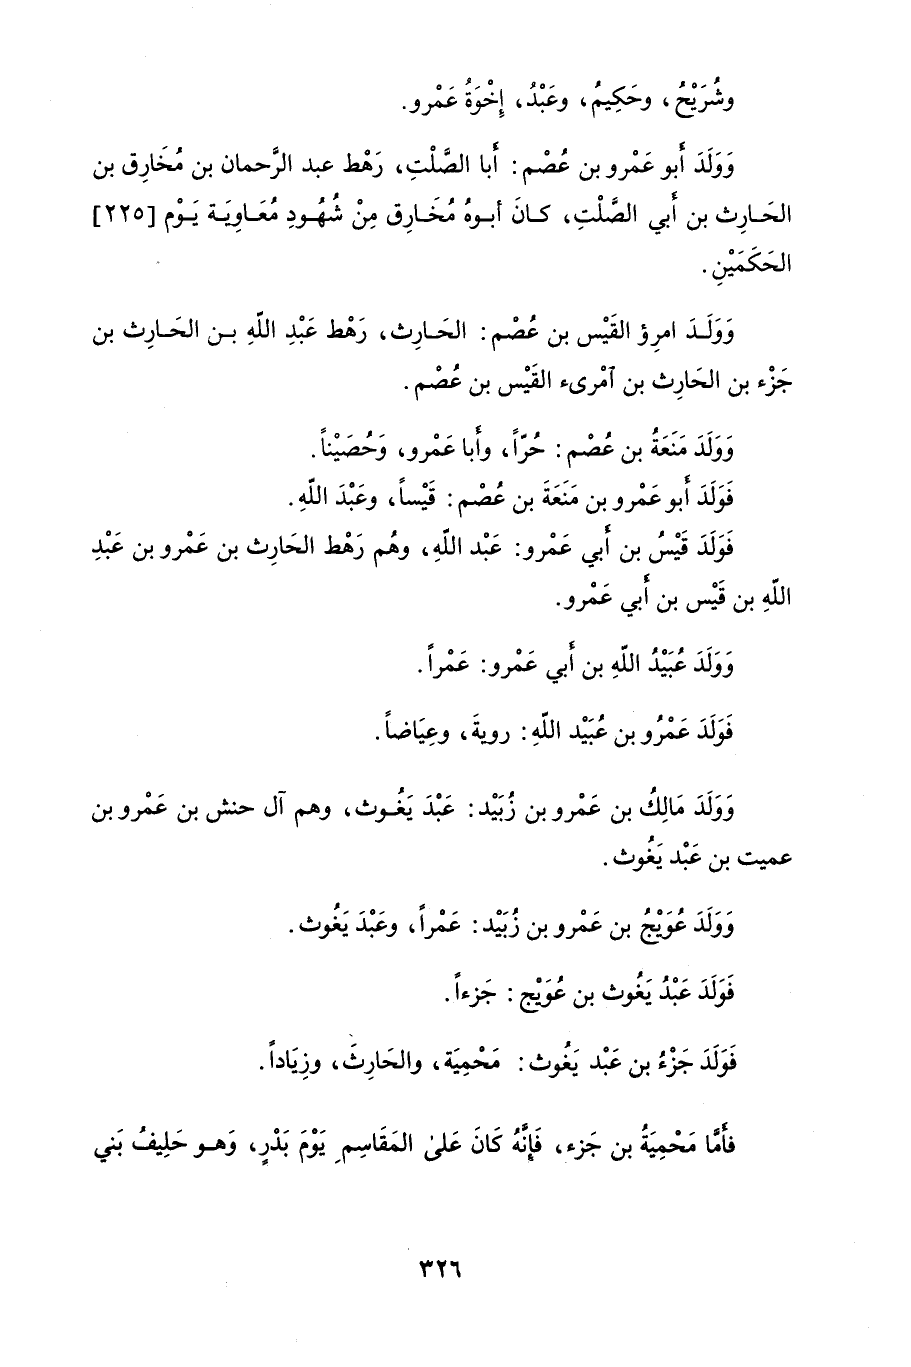 وشُرَيْحُ، وحَكِيمُ، وعَبْدُ، إِخْوَةُ عَمْرو.
وَوَلَدَ أَبو عَمْرو بن عُصْم: أَبا الصَّلْتِ، رَهْط عبد الرَّحمان بن مُخَارِق بن
الحَارِث بن أَبي الصَّلْتِ، كانَ أبوهُ مُخَارِق مِنْ شُهُودِ مُعَاوِيَة يَوْم [٢٢٥]
الحَكَمَيْنِ.
وَوَلَدَ امرِؤ القَيْس بن عُصْم: الحَارِث، رَهْط عَبْدِ اللّهِ بن الحَارِث بن
جَزْء بن الحَارِث بن آمْرىء القَيْس بن عُصْم.
وَوَلَدَ مَنَعَةُ بن عُصْم: حُرّاً، وأَبا عَمْرو، وَحُصَيْناً.
فَوَلَدَ أَبو عَمْرو بن مَنَعَةَ بن عُصْم: قَيْساً، وعَبْدَ اللّهِ.
فَوَلَدَ قَيْسُ بن أَبي عَمْرو: عَبْد اللّهِ، وهُم رَهْط الحَارِث بن عَمْرو بن عَبْدِ
اللّهِ بن قَيْس بن أَبي عَمْرو.
وَوَلَدَ عُبَيْدُ اللّهِ بن أَبي عَمْرو: عَمْراً.
فَوَلَدَ عَمْرُو بن عُبَيْد اللّهِ: رويةَ، وعِيَاضاً.
وَوَلَدَ مَالِكُ بن عَمْرو بن زُبَيْد: عَبْدَ يَغُوث، وهم آل حنش بن عَمْرو بن
عميت بن عَبْد يَغُوث.
وَوَلَدَ عُوَيْجُ بن عَمْرو بن زُبَيْد: عَمْراً، وعَبْدَ يَغُوث.
فَوَلَدَ عَبْدُ يَغُوث بن عُوَيْج: جَزءاً.
فَوَلَدَ جَزْءُ بن عَبْد يَغُوث: مَحْمِيَة، والحَارِثَ، وزِيَاداً.
فأَمَّا مَحْمِيَةُ بن جَزء، فَإِنَّهُ كَانَ عَلىٰ المَقَاسِمِ يَوْمَ بَدْرٍ، وَهو حَلِيفُ بَني
٣٢٦